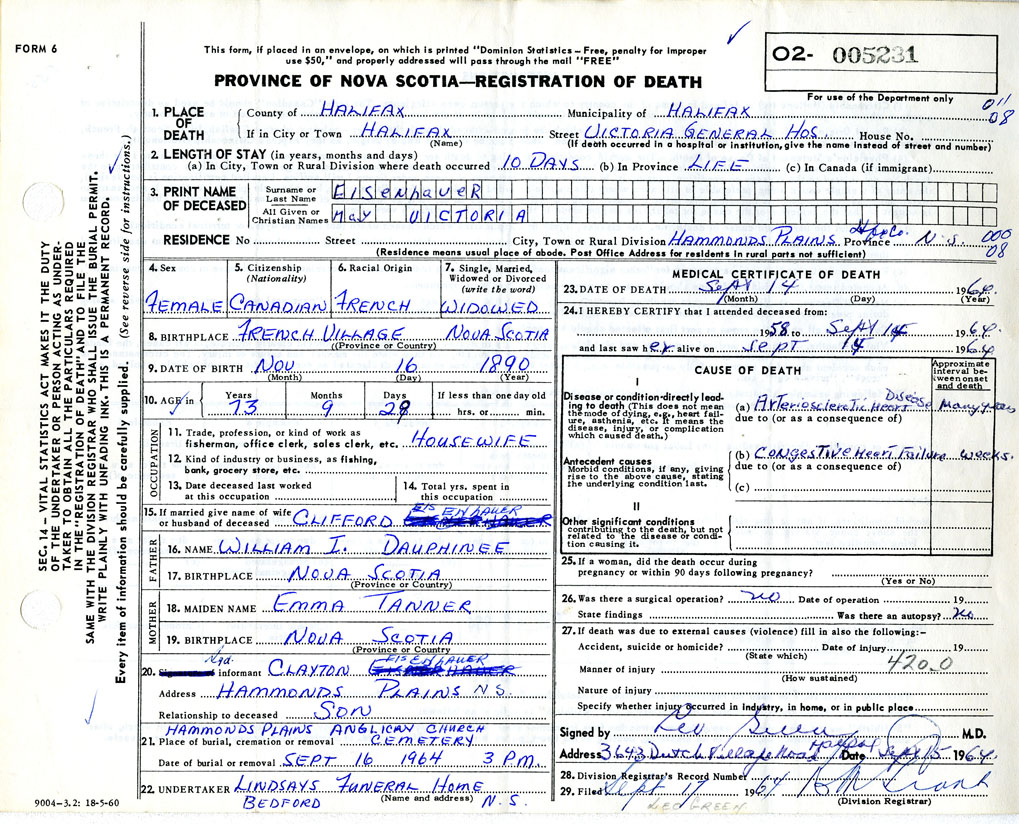 FORM 6
This form, if placed in an envelope, on which is printed "Dominion Statistics – Free, penalty for improper
use $50," and properly addressed will pass through the mail "FREE"
PROVINCE OF NOVA SCOTIA—REGISTRATION OF DEATH
02- 005231
For use of the Department only
011
08
1. PLACE OF DEATH
County of HALIFAX Municipality of HALIFAX
If in City or Town HALIFAX Street VICTORIA GENERAL HOS. House No.
(Name) (If death occurred in a hospital or institution, give the name instead of street and number)
2. LENGTH OF STAY (in years, months and days)
(a) In City, Town or Rural Division where death occurred 10 DAYS (b) In Province LIFE (c) In Canada (if immigrant)
3. PRINT NAME OF DECEASED
Surname or Last Name EISENHAUER
All Given or Christian Names MAY VICTORIA
RESIDENCE No Street City, Town or Rural Division HAMMONDS PLAINS Hfx Co. Province N.S. 000
08
(Residence means usual place of abode. Post Office Address for residents in rural parts not sufficient)
4. Sex
FEMALE
5. Citizenship (Nationality)
CANADIAN
6. Racial Origin
FRENCH
7. Single, Married, Widowed or Divorced (write the word)
WIDOWED
8. BIRTHPLACE FRENCH VILLAGE NOVA SCOTIA
(Province or Country)
9. DATE OF BIRTH NOV 16 1890
(Month) (Day) (Year)
10. AGE in Years Months Days If less than one day old
73 9 28 hrs. or min.
OCCUPATION
11. Trade, profession, or kind of work as
fisherman, office clerk, sales clerk, etc. HOUSEWIFE
12. Kind of industry or business, as fishing,
bank, grocery store, etc.
13. Date deceased last worked
at this occupation
14. Total yrs. spent in
this occupation
15. If married give name of wife
or husband of deceased CLIFFORD EISENHAUER
FATHER
16. NAME WILLIAM I. DAUPHINEE
17. BIRTHPLACE NOVA SCOTIA
(Province or Country)
MOTHER
18. MAIDEN NAME EMMA TANNER
19. BIRTHPLACE NOVA SCOTIA
(Province or Country)
20. informant CLAYTON EISENHAUER
Address HAMMONDS PLAINS N.S.
Relationship to deceased SON
HAMMONDS PLAINS ANGLICAN CHURCH
21. Place of burial, cremation or removal CEMETERY
Date of burial or removal SEPT 16 1964 3 PM.
22. UNDERTAKER LINDSAYS FUNERAL HOME
(Name and address)
BEDFORD N.S.
9004-3.2: 18-5-60
MEDICAL CERTIFICATE OF DEATH
23. DATE OF DEATH Sept 14 1964
(Month) (Day) (Year)
24. I HEREBY CERTIFY that I attended deceased from:
1958 to Sept 14 1964
and last saw her alive on Sept 14 1964
CAUSE OF DEATH
Approximate interval between onset and death
I
Disease or condition directly leading to death (This does not mean the mode of dying, e.g., heart failure, asthenia, etc. It means the disease, injury, or complication which caused death.)
(a) Arteriosclerotic Heart Disease Many years
due to (or as a consequence of)
Antecedent causes
Morbid conditions, if any, giving rise to the above cause, stating the underlying condition last.
(b) Congestive Heart Failure weeks.
due to (or as a consequence of)
(c)
II
Other significant conditions
contributing to the death, but not related to the disease or condition causing it.
25. If a woman, did the death occur during
pregnancy or within 90 days following pregnancy?
(Yes or No)
26. Was there a surgical operation? no Date of operation 19
State findings Was there an autopsy? No
27. If death was due to external causes (violence) fill in also the following:–
Accident, suicide or homicide? Date of injury 19
(State which)
420.0
Manner of injury
(How sustained)
Nature of injury
Specify whether injury occurred in industry, in home, or in public place
Signed by Leo Green M.D.
Address 3643 Dutch Village Road Halifax Date Sept 15 1964
28. Division Registrar's Record Number
29. Filed Sept 17 1964
(Division Registrar)
LEO GREEN
SEC. 14 – VITAL STATISTICS ACT MAKES IT THE DUTY
OF THE UNDERTAKER OR PERSON ACTING AS UNDER-
TAKER TO OBTAIN ALL THE PARTICULARS REQUIRED
IN THE "REGISTRATION OF DEATH" AND TO FILE THE
SAME WITH THE DIVISION REGISTRAR WHO SHALL ISSUE THE BURIAL PERMIT.
WRITE PLAINLY WITH UNFADING INK. THIS IS A PERMANENT RECORD.
Every item of information should be carefully supplied. (See reverse side for instructions.)